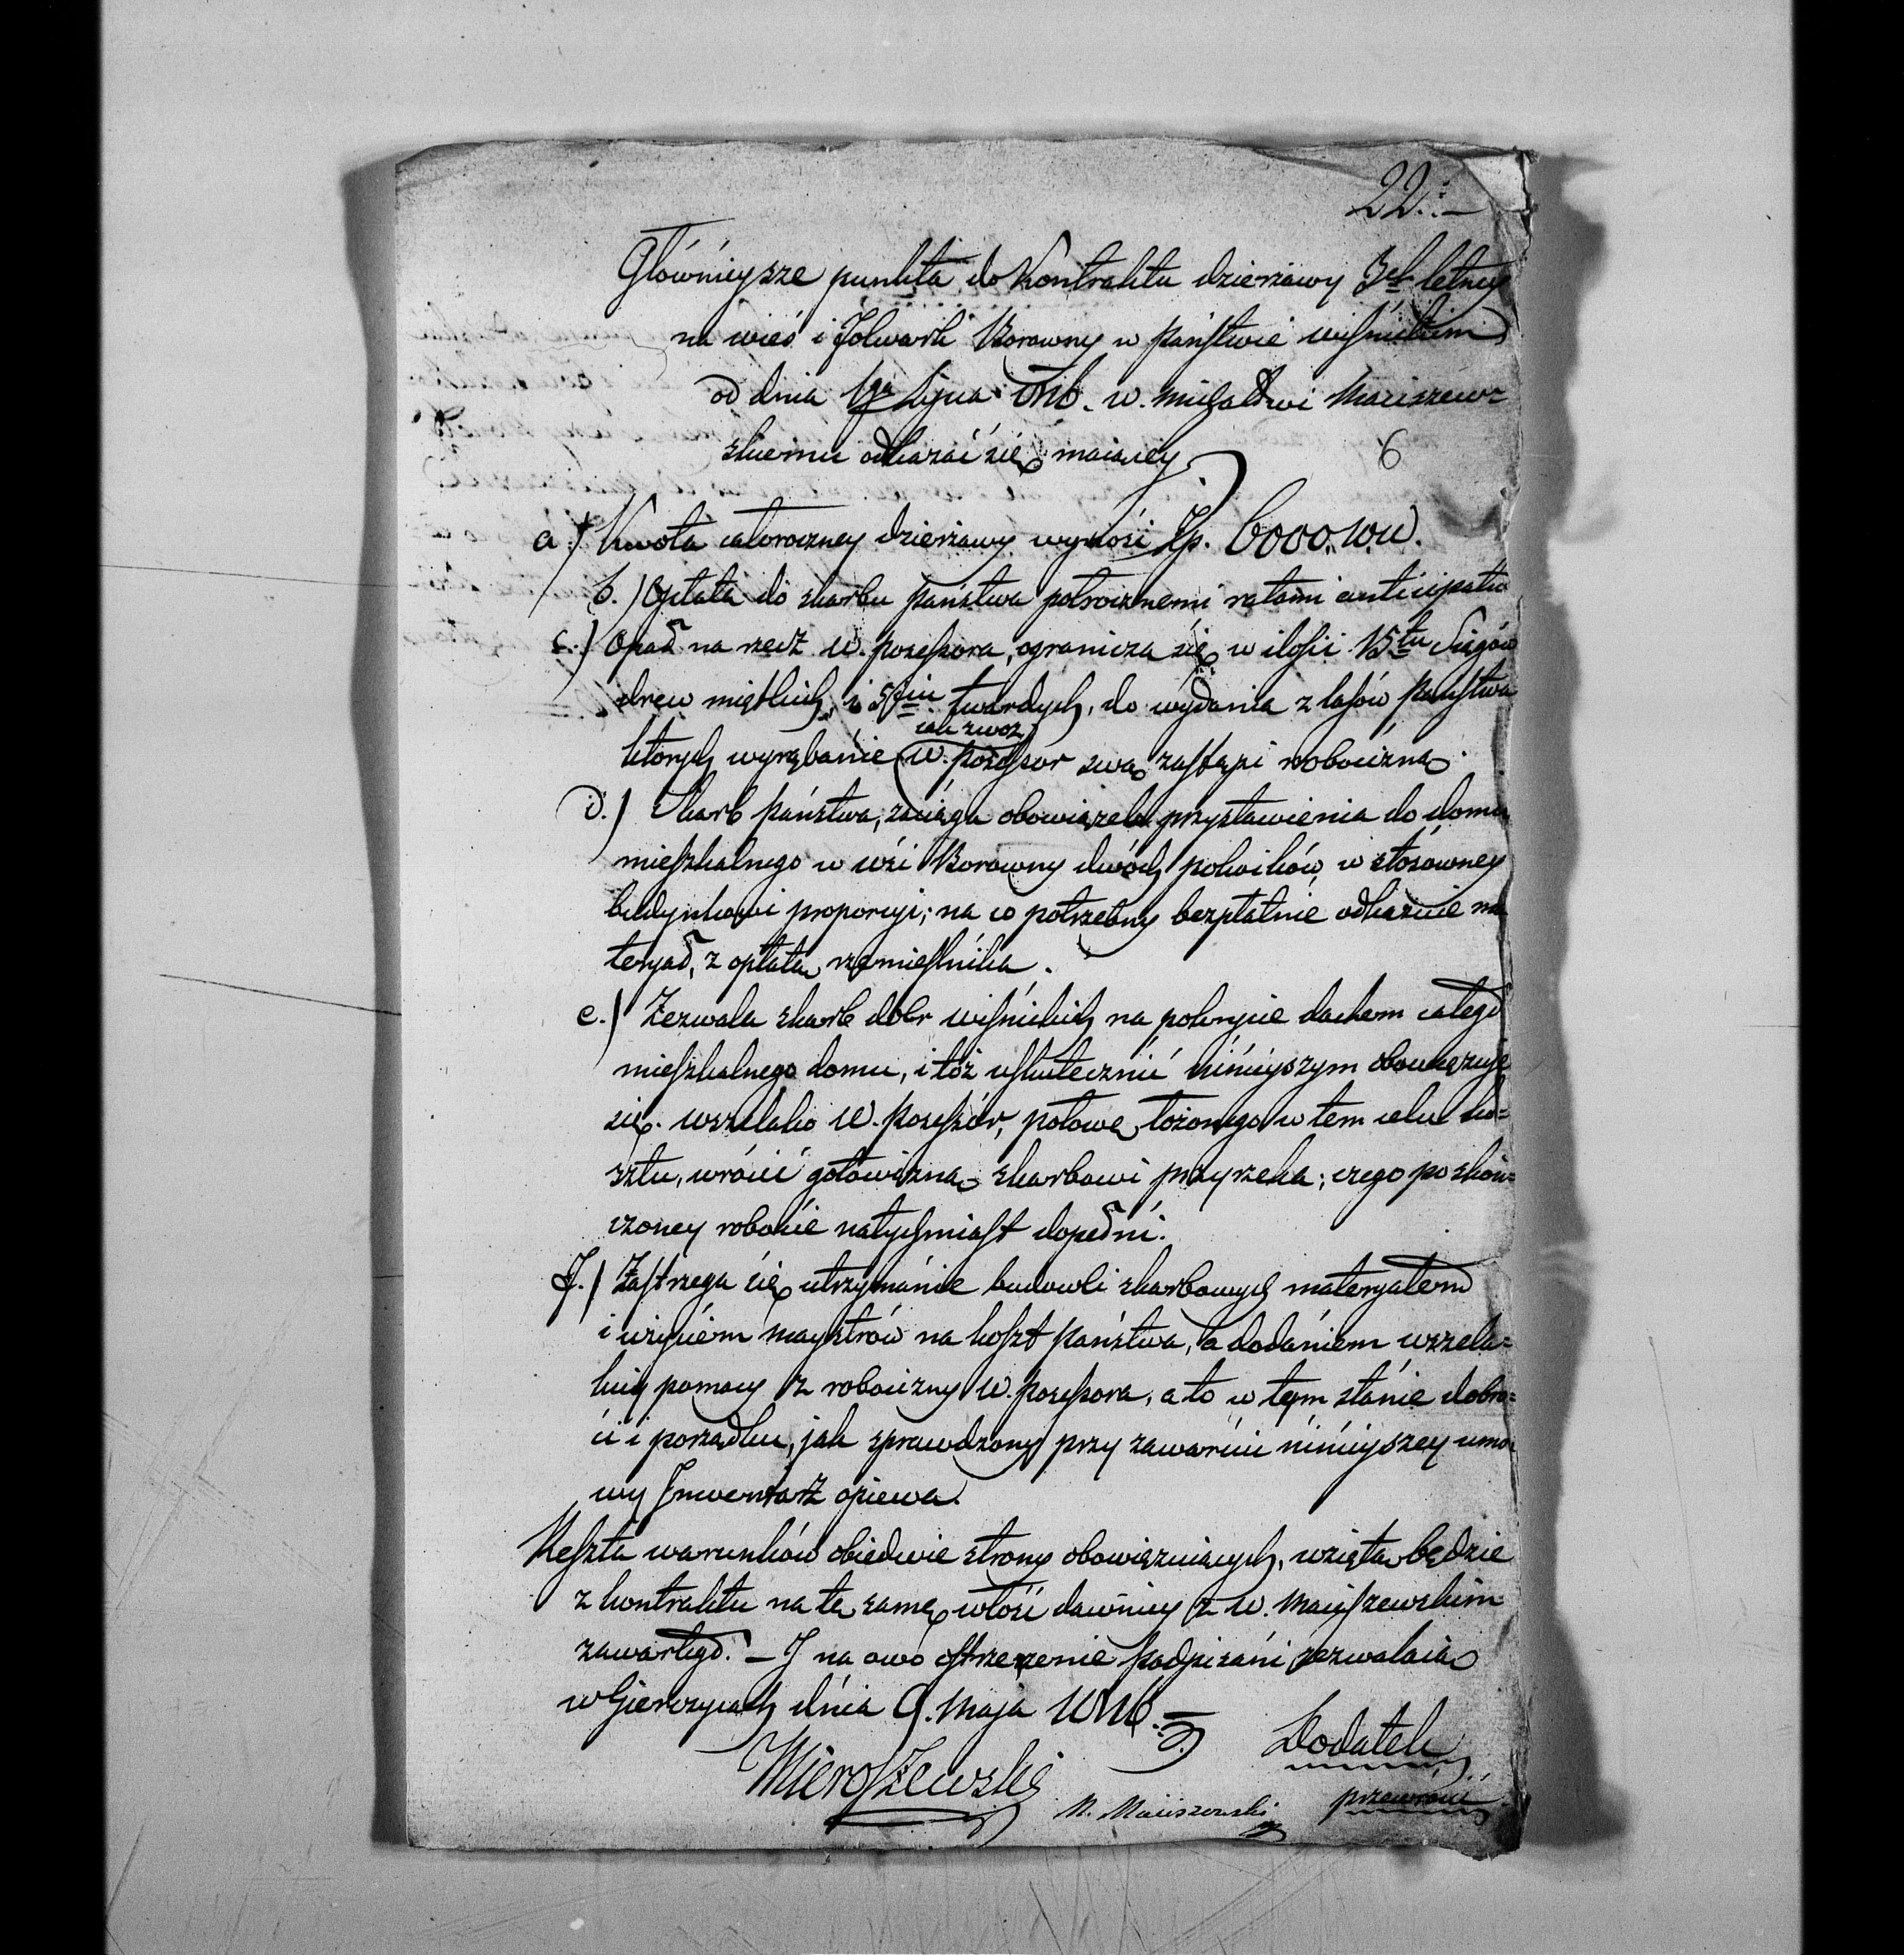 22.
Głównieysze punkta do Kontraktu dzierżawy 3ch letniey
na wieś i folwark Borowny w państwie wiśnickim
od dnia 1go Lipca W. Michałowi Maciszew-
skiemu odkazać się maiącey
6
a.) Kwota całoroczney dzierżawy wynosi Zp. 6000. w.w.
b.) Opłata do skarbu państwa półrocznemi ratami anticipatio
c.) Opał na rzecz W. possessora, ogranicza się w ilości 15tu Siągów
drew miętkich, i 5ciu twardych, do wydania z lasów państwa
których wyrąbanie W. possessor swą zastąpi robocizną.
d.) Skarb państwa, zaciąga obowiązek przystawienia do domu
mieszkalnego w wsi Borowny dwóch pokoików, w stósowney
budynkowi proporcyi; na co potrzebny bezpłatnie odkazuie ma
teryał, z opłatą rzemieślnika.
e.) Zezwala skarb dóbr wiśnickich na pokrycie dachem całego
mieszkalnego domu, i toż uskutecznić ninieyszym obowięzuje
się. wszelako W. possessor, połowę łożonego w tem celu ko=
sztu, wrócić gotowizną skarbowi przyrzeka; czego po skoń=
czoney robocie natychmiast dopełni.
f.) Zastrzega się utrzymanie budowli skarbowych materyałem
i użyciem maystrów na koszt państwa, a dodaniem wszela=
kiey pomocy z robocizny W. possessora, a to w tym stanie dobro=
ci i porządku, jak sprawdzony przy zawarciu ninieyszey umo
wy Inwentarz opiewa.
Reszta warunków obiedwie strony obowięzuiących, wzięta będzie
z kontraktu na tę samę włość dawniey z W. Maciszewskim
zawartego. – I na owo ostrzeżenie podpisani zezwalaią
w Gierczycach dnia 9. Maja
Mieroszewski
Dodatek
M. Maciszewski
przewróć